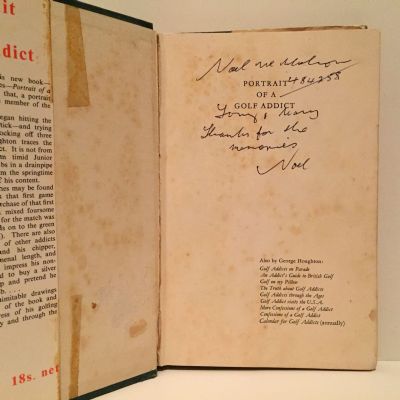 it
dict
is new book—
es—Portrait of a
that, a portrait
member of the
egan hitting the
tick—and trying
ocking off three
ghton traces the
ct. It is not from
om timid Junior
bs in a drainpipe
om the springtime
of his content.
nes may be found
that first game
rchase of that first
mixed foursome
for the month was
ds on to the green
). There are also
of other addicts
and his chipper,
menal length, and
impress his non-
ed to buy a silver
p and pretend he
b. . . .
imitable drawings
of the book and
ress of his golfing
y and through the
18s. net
Noel
484258
PORTRAIT
OF A
GOLF ADDICT
Tony &
Thanks for the
memories
Noel
Also by George Houghton:
Golf Addicts on Parade
An Addict's Guide to British Golf
Golf on my Pillow
The Truth about Golf Addicts
Golf Addicts through the Ages
Golf Addict visits the U.S.A.
More Confessions of a Golf Addict
Confessions of a Golf Addict
Calendar for Golf Addicts (annually)